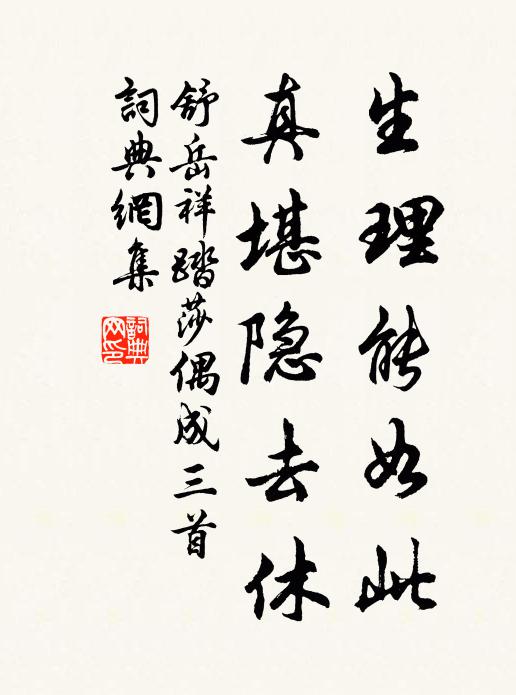 生理能如此
真堪隐去休
舒岳祥踏莎偶成三首
詞典網集
詞典網印